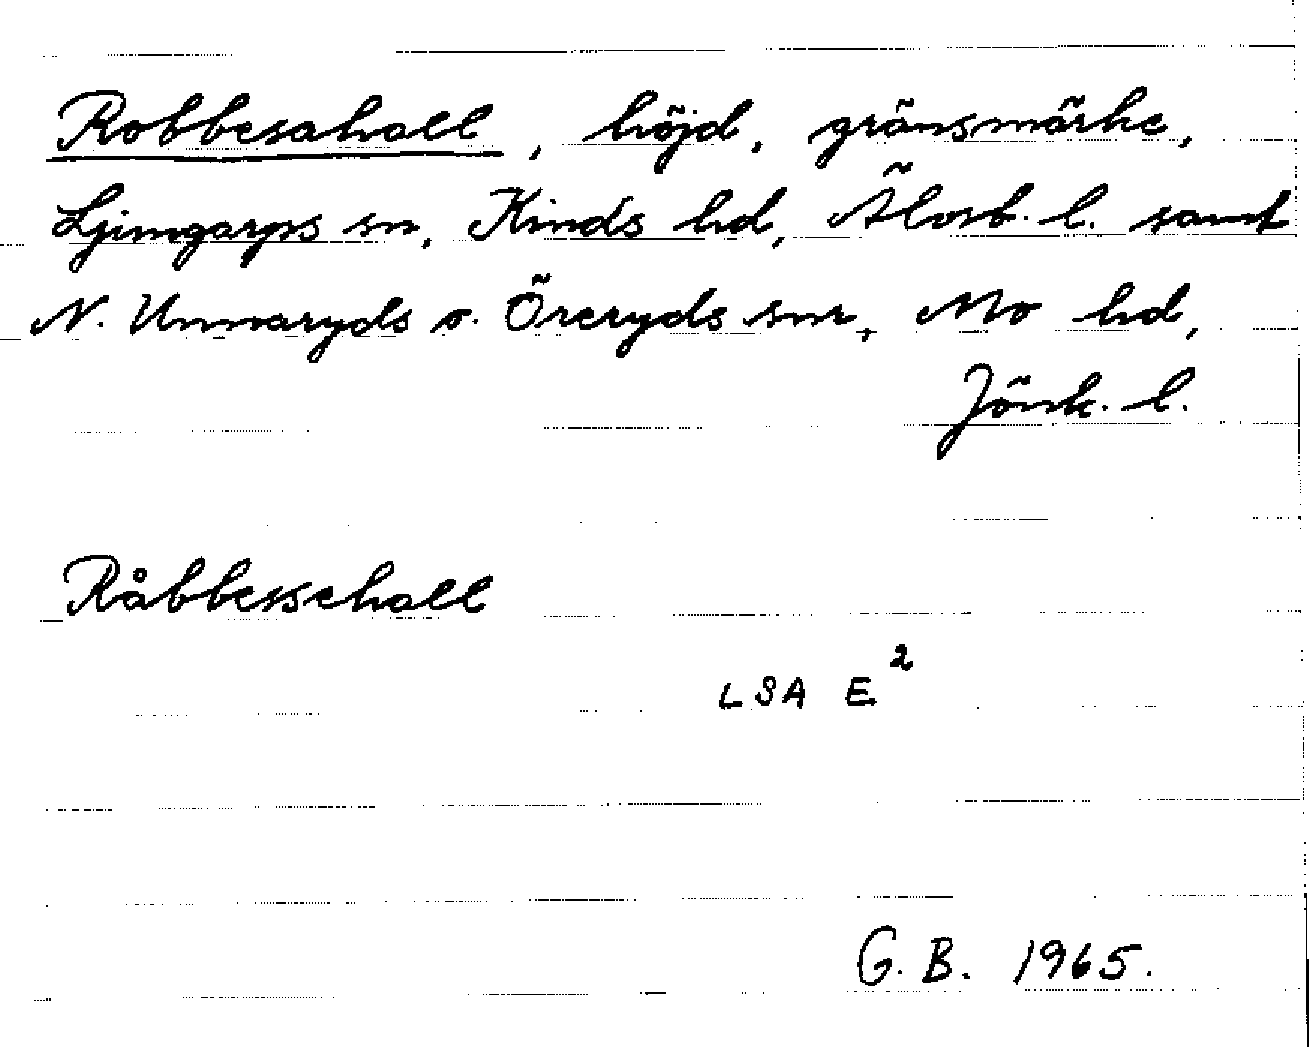 Robbesahall, höjd, gränsmärke,
Ljungarps sn, Kinds hd, Älvsb. l. samt
N. Unnaryds o. Öreryds snr, Mo hd,
Jönk. l.
Råbbessehall
LSA E²
G. B. 1965.